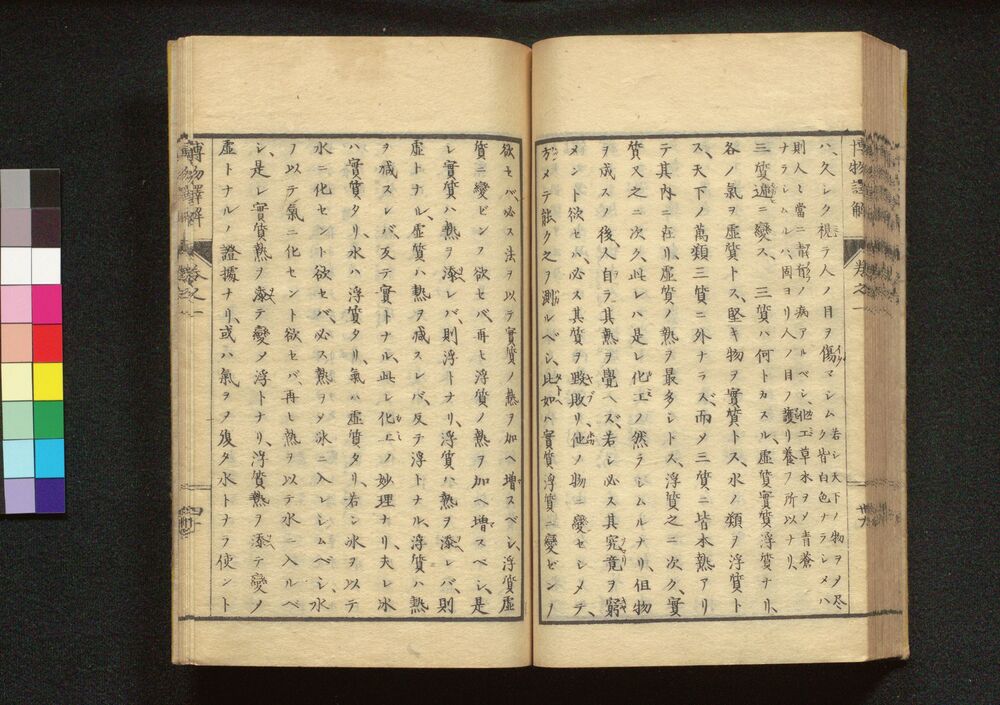 博物譯解 巻之一 廿九
ハ、久シク視テ人ノ目ヲ傷マシム若シ天下ノ物ヲメ尽ク皆白色ナラシメハ
則人當ニ ノ病アルベシ、化工草水ヲメ青蒼
ナラシムルハ、固ヨリ人ノ目ヲ護リ養フ所以ナリ、
三質逓ニ變ス、三質ハ何トカスル、虚質實質浮質ナリ、
各ノ氣ヲ虚質トス、堅キ物ヲ實質トス、水ノ類ヲ浮質ト
ス、天下ノ萬類三質ニ外ナラズ、而メ三質ニ皆本熱アリ
テ其内ニ在リ虚質ノ熱ヲ最多シトス、浮質之ニ次ク、實
質又之ニ次ク、此レハ是レ化工ノ然ラシムルナリ、但物
ヲ成スノ後、人自ラ其熱ヲ覺ヘズ、若シ必ス其究竟ヲ窮
メント欲セハ、必ス其質ヲ毀敗リ、他ノ物ニ變セシメテ、
方メテ能ク之ヲ測ルベシ、此如ハ實質浮質ニ變ゼンノ
欲セバ、必ス法ヲ以テ實質ノ熱ヲ加ヘ增スベシ、浮質虚
質ニ變ゼンフ欲セバ、再ヒ浮質ノ熱ヲ加ヘ增スベシ、是
レ實質ハ熱ヲ添レバ、則浮トナリ、浮質ハ熱ヲ添レバ、則
虚トナル、虚質ハ熱ヲ减スレバ、反テ浮トナル、浮質ハ熱
ヲ减スレバ、反テ實トナル、此レ化工ノ妙理ナリ、夫レ氷
ハ實質タリ、水ハ浮質タリ、氣ハ虚質タリ、若シ氷ヲ以テ
水ニ化セント欲セバ、必ス熱ヲメ氷ニ入レシムベシ、水
ノ以テ氣ニ化セント欲セバ、再ヒ熱ヲ以テ水ニ入ルベ
シ、是レ實質熱ヲ添テ變メ浮トナリ、浮質熱ヲ添テ變メ
虚トナルノ證據ナリ、或ハ氣ヲメ復タ水トナラ使ント
博物譯解 巻之一